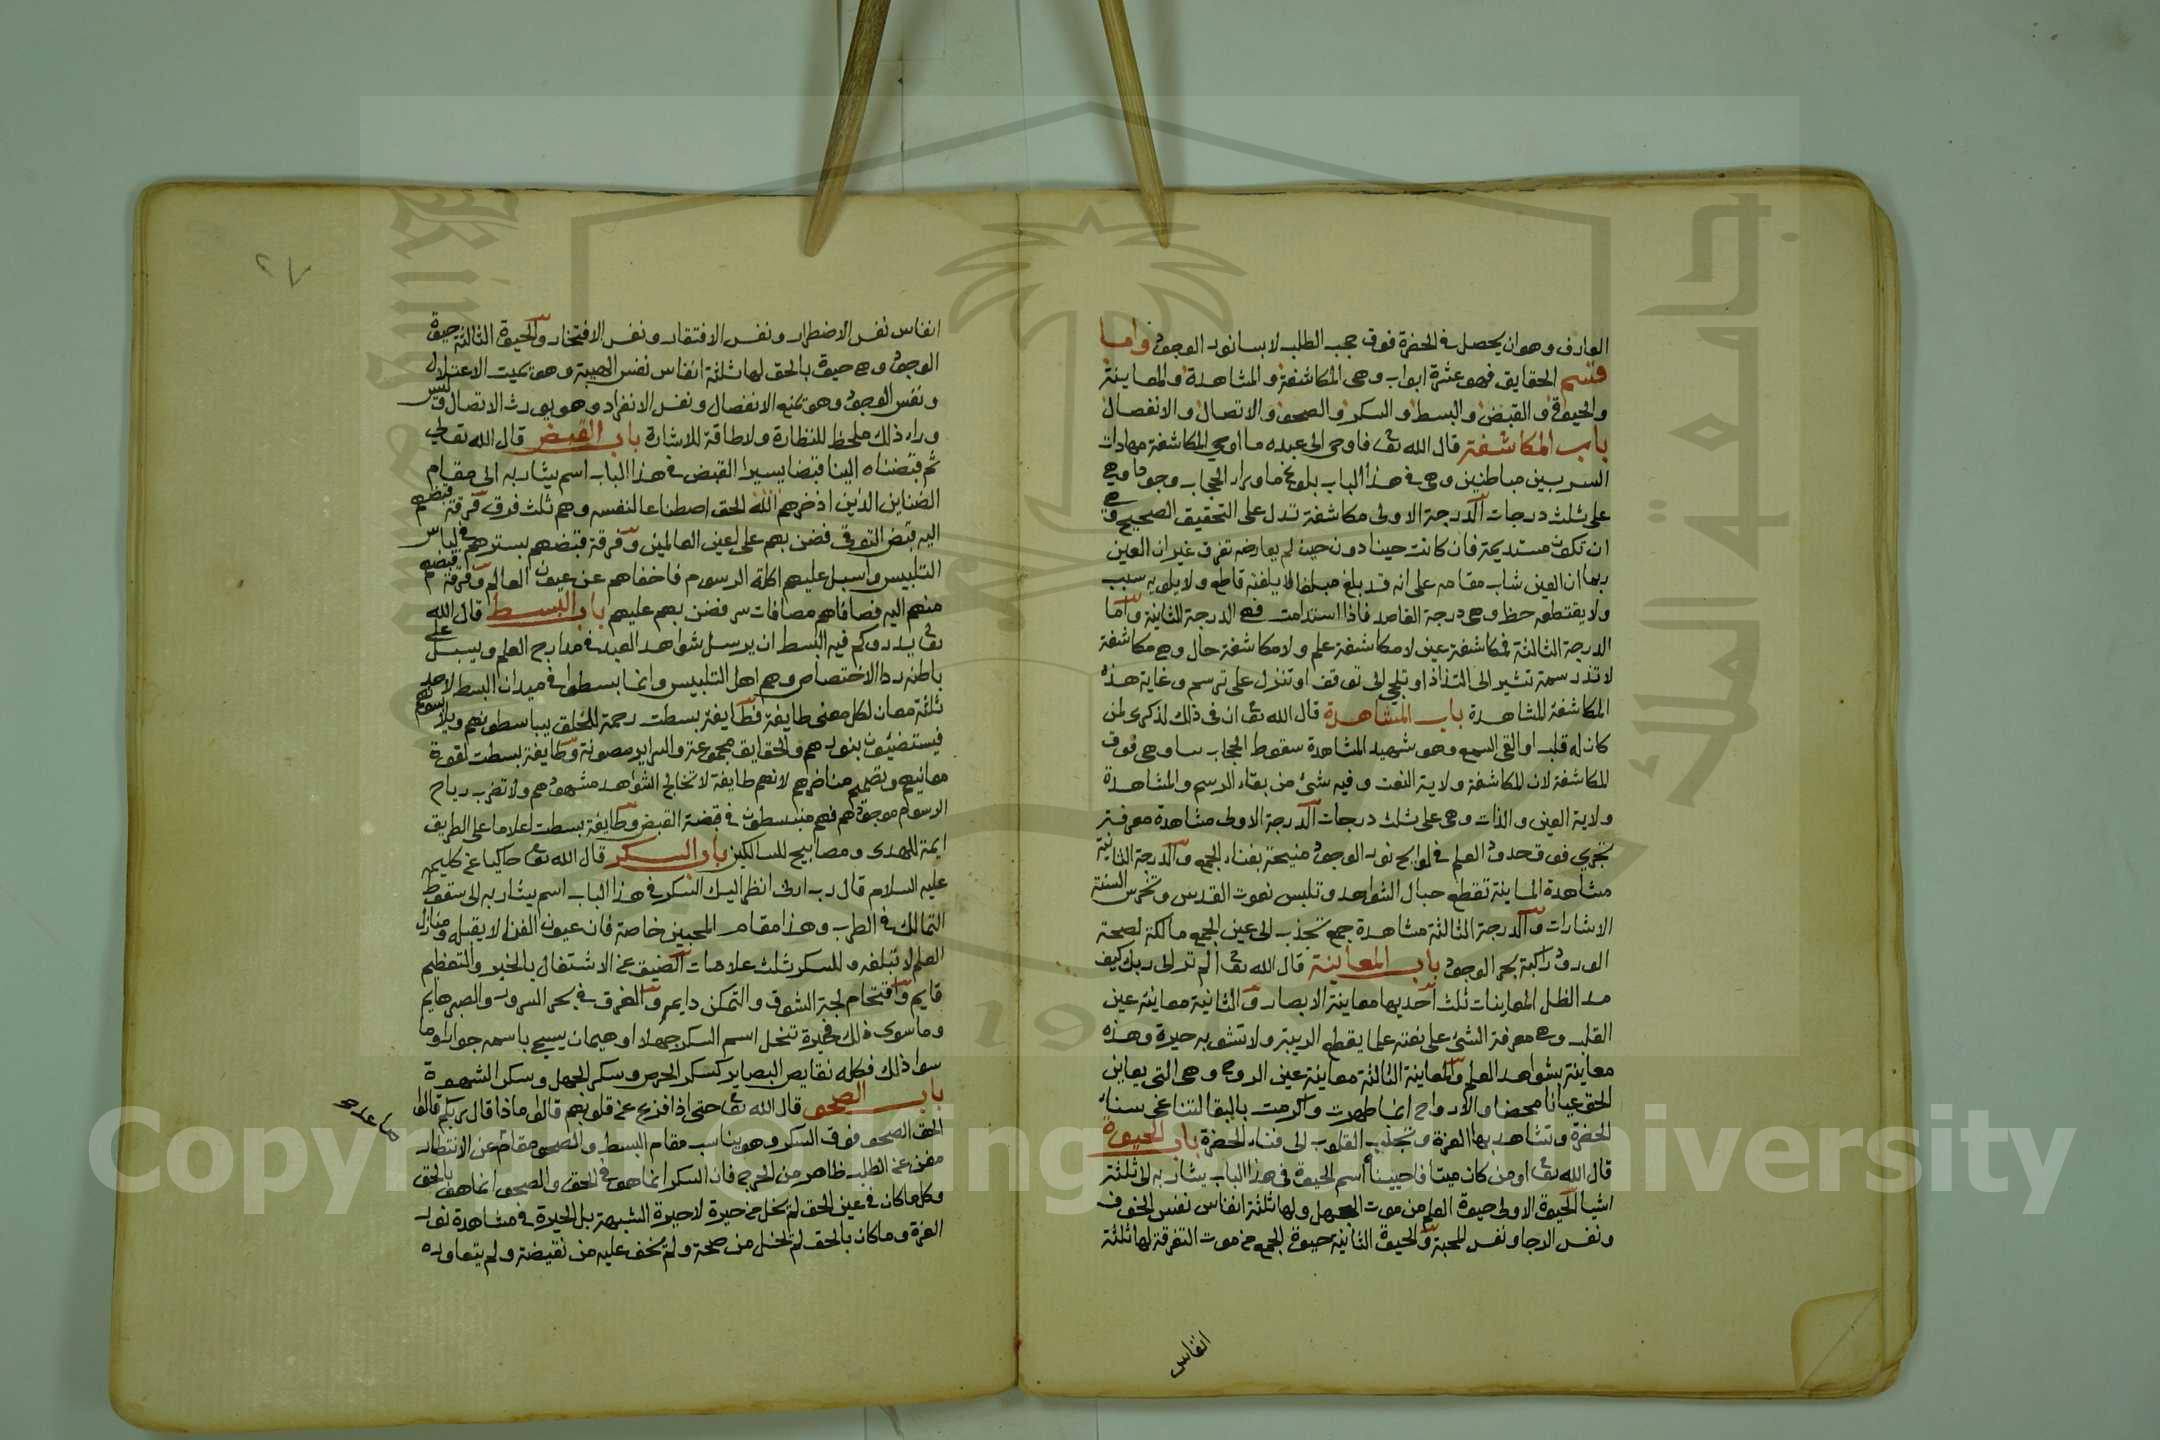 الوارف وهو ان يحصل في الحضرة فوق حجب الطلب لابسا نور الوجود واما
قسم الحقايق فهو عشرة ابواب وهي المكاشفة والمشاهدة والمعاينة
والحيوة والقبض والبسط والسكر والصحو والاتصال والانفصال
باب المكاشفة قال الله تعـ فاوحى الى عبده ما اوحى المكاشفة مهادات
السر بين متباطنين وهي في هذا الباب بلوغ ما وراء الحجاب وجودا وهي
على ثلث درجات الدرجة الاولى مكاشفة تدل على التحقيق الصحيح وهي
ان تكون مستديمة فان كانت حينا دون حين لم يعارضه تفرق غير ان الغين
ربما ان الغين شاب مقامه على انه قد بلغ مبلغا لا يلفته قاطع ولا يلويه سبب
ولا يقتطعه حظ وهي درجة القاصد فاذا استدامت فهي الدرجة الثانية واما
الدرجة الثالثة فمكاشفة عين لا مكاشفة علم ولا مكاشفة حال وهي مكاشفة
لا تذر سمة تشير الى التذاذ او تلجي الى توقف او تنزل على ترسم وغاية هذه
المكاشفة المشاهدة باب المشاهدة قال الله تعـ ان في ذلك لذكرى لمن
كان له قلب او القى السمع وهو شهيد المشاهدة سقوط الحجاب بتا وهي فوق
المكاشفة لان المكاشفة ولاية النعت وفيه شئ من بقاء الرسم والمشاهدة
ولاية العين والذات وهي على ثلث درجات الدرجة الاولى مشاهدة معرفة
تجري فوق حدود العلم في لوايح نور الوجود منيخة بفناء الجمع والدرجة الثانية
مشاهدة المعاينة تقطع حبال الشواهد وتلبس نعوت القدس وتخرس السنة
الاشارات والدرجة الثالثة مشاهدة جمع تجذب الى عين الجمع مالكة لصحة
الورود راكبة بحر الوجود باب المعاينة قال الله تعـ الم تر الى ربك كيف
مد الظل المعاينات ثلث احديها معاينة الابصار والثانية معاينة عين
القلب وهي معرفة الشئ على نعته علما يقطع الريبة ولا تشوبه حيرة وهذه
معاينة بشواهد العلم والمعاينة الثالثة معاينة عين الروح وهي التي يعاين
الحق عيانا محضا والارواح انما طهرت واكرمت بالبقا لتناغي سناء
الحضرة وتشاهد بهاء العزة وتجذب القلوب الى فناء الحضرة باب الحيوة
قال الله تعـ او من كان ميتا فاحييناه اسم الحيوة في هذا الباب يشار به الى ثلثة
اشيا الحيوة الاولى حيوة العلم من موت الجهل ولها ثلثة انفاس نفس الخوف
ونفس الرجا ونفس المحبة والحيوة الثانية حيوة الجمع من موت التفرقة لها ثلثة
انفاس
٢٧
انفاس نفس الاضطرار ونفس الافتقار ونفس الافتخار والحيوة الثالثة حيوة
الوجود وهي حيوة بالحق لها ثلثة انفاس نفس الهيبة وهو يميت الاعتلال
ونفس الوجود وهو يمنع الانفصال ونفس الانفراد وهو يورث الاتصال وليس
وراء ذلك ملحظ للنظارة ولا طاقة للاشارة باب القبض قال الله تعالى
ثم قبضناه الينا قبضا يسيرا القبض في هذا الباب اسم يشار به الى مقام
الضناين الذين اذخرهم الله الحق اصطناعا لنفسه وهم ثلث فرق فرقة قبضهم
اليه قبض التوقي فضن بهم على اعين العالمين وفرقة قبضهم بسترهم في لباس
التلبيس واسبل عليهم اكلة الرسوم فاخفاهم عن عيون العالم وفرقة قبضهم
منهم اليه فصافاهم مصافات سر فضن بهم عليهم باب البسط قال الله
تعـ يذروكم فيه البسط ان يرسل شواهد العبد في مدارج العلم ويسبل على
باطنه ردا الاختصاص وهم اهل التلبيس وانما بسطوا في ميدان البسط لاحد
ثلثة معان لكل معنى طايفة فطايفة بسطت رحمة للخلق يباسطونهم ويلابسونهم
فيستضيئون بنورهم والحقايق مجموعة والسراير مصونة وطايفة بسطت لقوة
معانيهم وتصميم مناظرهم لانهم طايفة لا تخالج الشواهد مشهودهم ولا تضرب رياح
الرسوم موجودهم فهم منبسطون في قبضة القبض وطايفة بسطت اعلاما على الطريق
ايمة للهدى ومصابيح للسالكين باب السكر قال الله تعـ حاكيا عن كليمه
عليه السلام قال رب ارني انظر اليك السكر في هذا الباب اسم يشار به الى سقوط
التمالك في الطرب وهذا مقام المحبين خاصة فان عيون الفنا لا يقبله ومنازل
العلم لا تبلغه وللسكر ثلث علامات الضيق عن الاشتغال بالخبر والتعظيم
قايم واقتحام لجة الشوق والتمكن دايم والغرق في بحر السرور والصبر هايم
وما سوى ذلك فحيرة تنحل اسم السكر جهلا او هيمان يسمي باسمه جورا وما
سوا ذلك فكله نقايص البصاير كسكر الحرص وسكر الجهل وسكر الشهوة
باب الصحو قال الله تعـ حتى اذا فزع عن قلوبهم قالوا ماذا قال ربكم قالوا
الحق الصحو فوق السكر وهو يناسب مقام البسط والصحو مقام عن الانتظار
مغن عن الطلب ظاهر من الحرج فان السكر انما هو في الحق والصحو انما هو بالحق
وكل ما كان في عين الحق لم يخل من حيرة لا حيرة الشبهة بل الحيرة في مشاهدة نور
العزة وما كان بالحق لم يخل من صحة ولم يخف عليه من نقيضة ولم يتعاوره
جامعة الملك سعود
19
Copyright © King Saud University